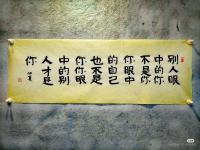 别人眼
中的你
不是你
你眼中
的自己
也不是
你你眼
中的别
人才是
你